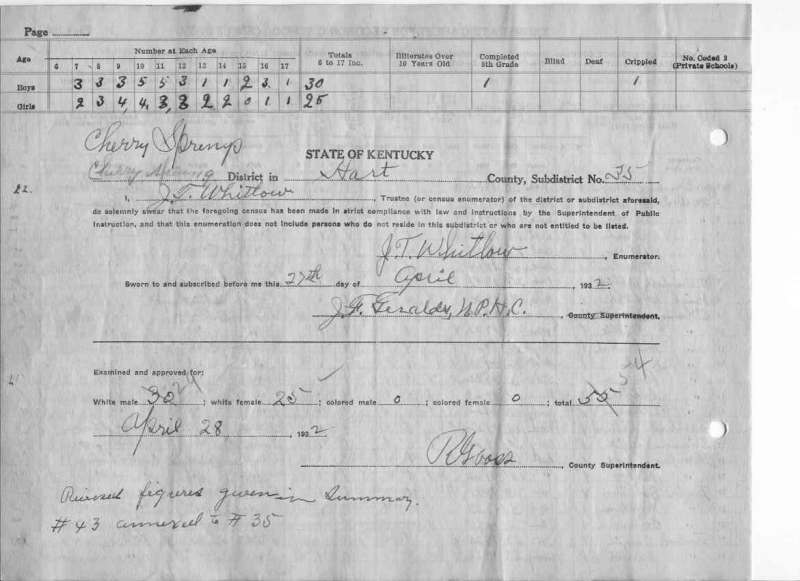 Page
Age Number at Each Age Totals 6 to 17 Inc. Illiterates Over 10 Years Old Completed 8th Grade Blind Deaf Crippled No. Coded 2 (Private Schools)
6 7 8 9 10 11 12 13 14 15 16 17
Boys 3 3 3 5 5 3 1 1 2 3 1 30 1 1
Girls 2 3 4 4 3 2 2 2 0 1 1 25
Cherry Springs
STATE OF KENTUCKY
Cherry Spring District in Hart County, Subdistrict No. 35
I, J.T. Whitlow, Trustee (or census enumerator) of the district or subdistrict aforesaid,
do solemnly swear that the foregoing census has been made in strict compliance with law and instructions by the Superintendent of Public
Instruction, and that this enumeration does not include persons who do not reside in this subdistrict or who are not entitled to be listed.
J.T. Whitlow, Enumerator.
Sworn to and subscribed before me this 27th day of April, 1932.
J.F. Geralds, N.P.H.C., County Superintendent.
Examined and approved for:
White male 30 29; white female 25; colored male 0; colored female 0; total 55 54
April 28, 1932
County Superintendent.
Revised figures given in Summary.
#43 annexed to #35